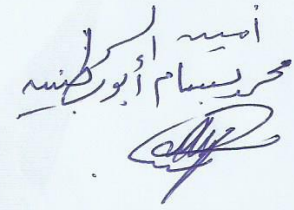 أمين السر
محمد بسام أبو